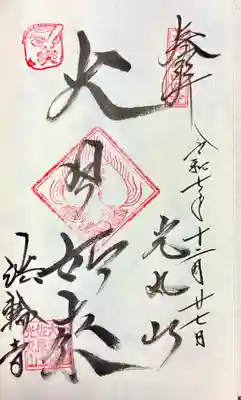 奉拝
令和七年十二月廿七日
光丸山
大日如来
法輪寺